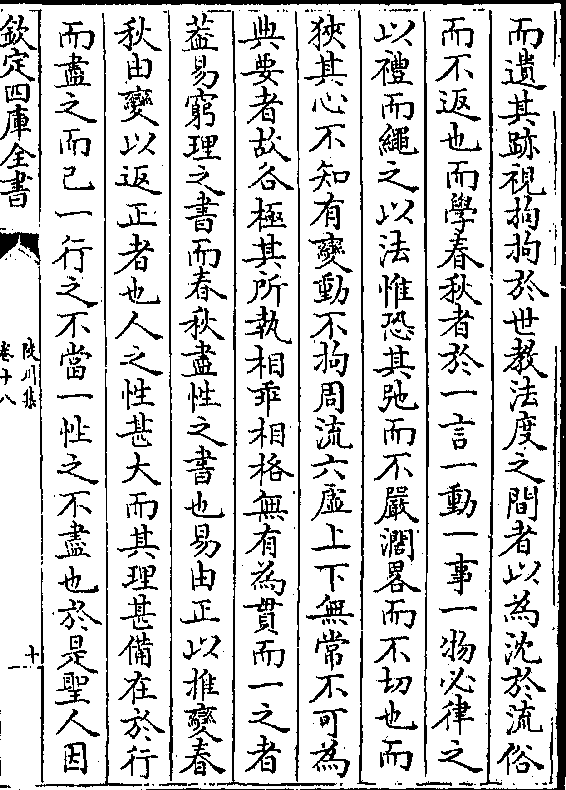 而遺其跡視拘拘於世教法度之間者以為沈於流俗
而不返也而學春秋者於一言一動一事一物必律之
以禮而繩之以法惟恐其弛而不嚴濶畧而不切也而
狹其心不知有變動不拘周流六虛上下無常不可為
典要者故各極其所執相乖相格無有為貫而一之者
葢易窮理之書而春秋盡性之書也易由正以推變春
秋由變以返正者也人之性甚大而其理甚備在於行
而盡之而已一行之不當一性之不盡也於是聖人因
欽定四庫全書
陂川集
卷十八
十